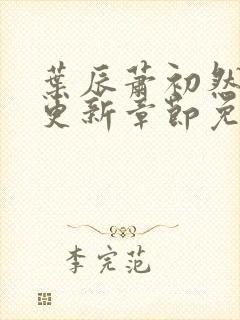 葉辰蕭初然
更新章節免
李完范